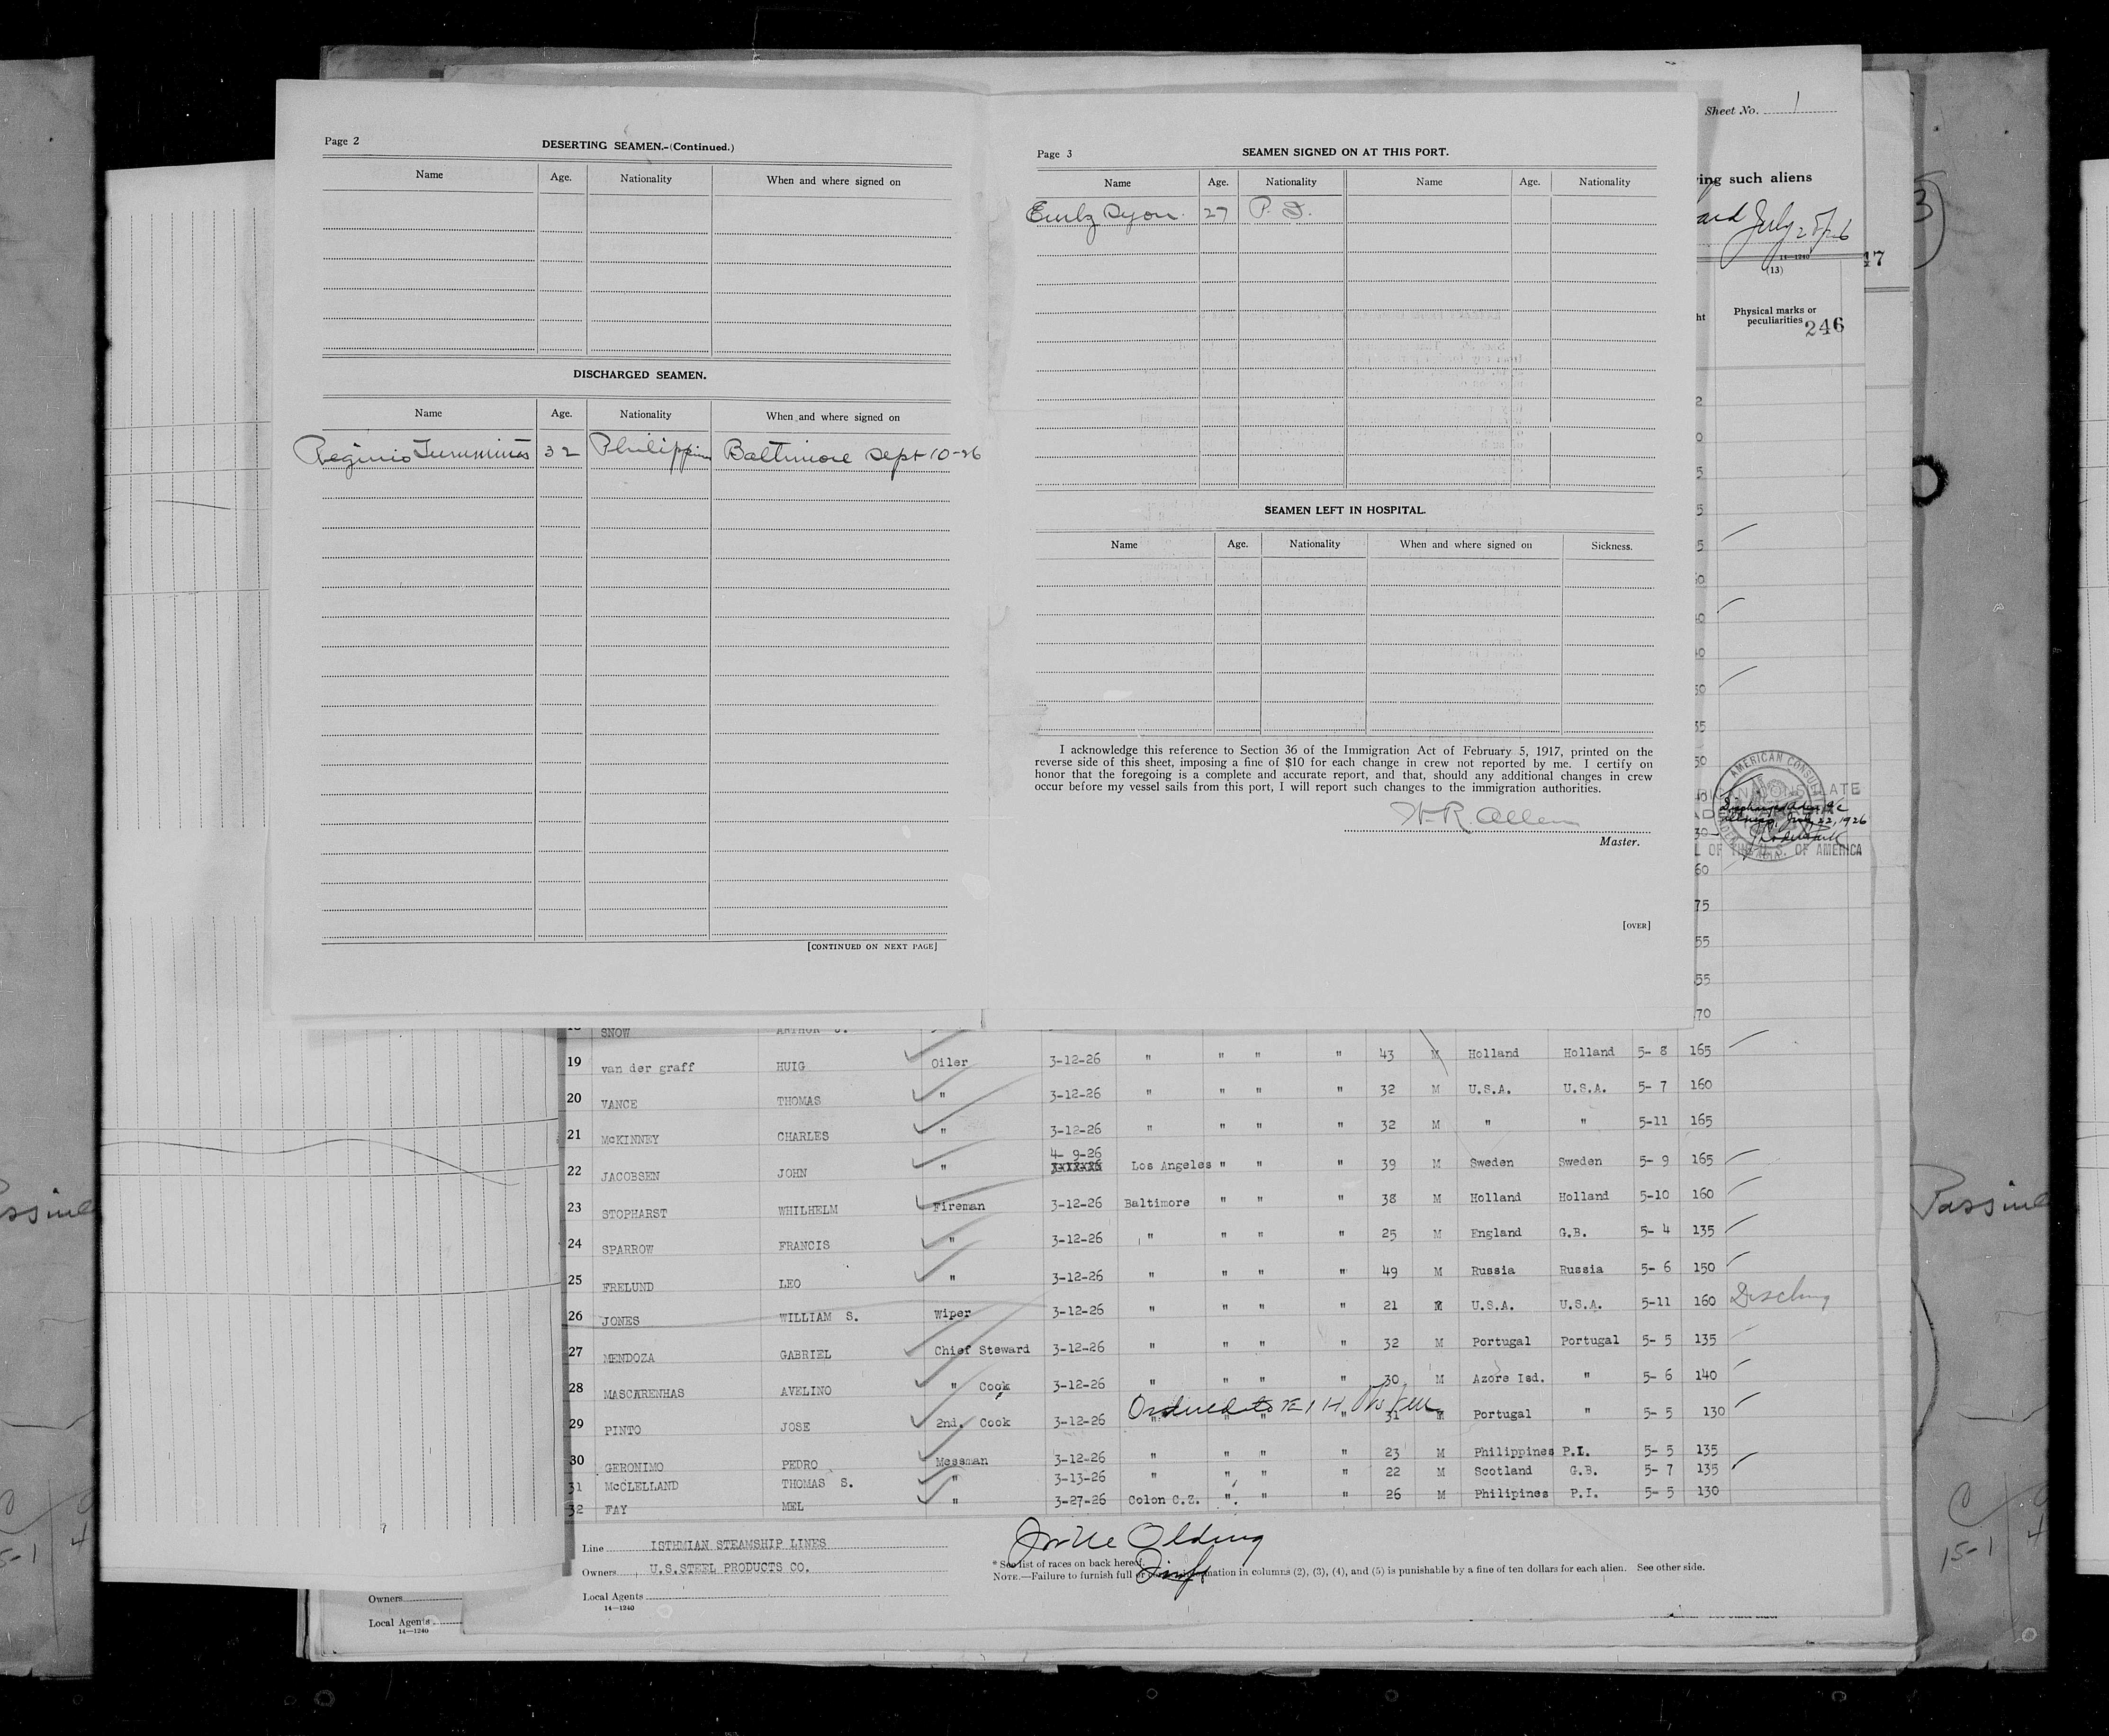 Page 2
DESERTING SEAMEN.-(Continued.)
Name Age. Nationality When and where signed on
DISCHARGED SEAMEN.
Name Age. Nationality When and where signed on
Reginio 32 Philippine Baltimore Sept 10-26
[CONTINUED ON NEXT PAGE]
Page 3
SEAMEN SIGNED ON AT THIS PORT.
Name Age. Nationality Name Age. Nationality
27 P. I.
SEAMEN LEFT IN HOSPITAL.
Name Age. Nationality When and where signed on Sickness.
I acknowledge this reference to Section 36 of the Immigration Act of February 5, 1917, printed on the
reverse side of this sheet, imposing a fine of $10 for each change in crew not reported by me. I certify on
honor that the foregoing is a complete and accurate report, and that, should any additional changes in crew
occur before my vessel sails from this port, I will report such changes to the immigration authorities.
H. R. Allen
Master.
[OVER]
Sheet No. 1
ving such aliens
July
14—1240
(13)
47
ht Physical marks or
peculiarities
246
AMERICAN CONSUL
OF THE U.S. OF AMERICA
SNOW ARTHUR J.
19 van der graff HUIG Oiler 3-12-26 " " " " 43 M Holland Holland 5- 8 165
20 VANCE THOMAS " 3-12-26 " " " " 32 M U.S.A. U.S.A. 5- 7 160
21 McKINNEY CHARLES " 3-12-26 " " " " 32 M " " 5-11 165
22 JACOBSEN JOHN " 4- 9-26 Los Angeles " " " 39 M Sweden Sweden 5- 9 165
23 STOPHARST WHILHELM Fireman 3-12-26 Baltimore " " " 38 M Holland Holland 5-10 160
24 SPARROW FRANCIS " 3-12-26 " " " " 25 M England G.B. 5- 4 135
25 FRELUND LEO " 3-12-26 " " " " 49 M Russia Russia 5- 6 150
26 JONES WILLIAM S. Wiper 3-12-26 " " " " 21 M U.S.A. U.S.A. 5-11 160
27 MENDOZA GABRIEL Chief Steward 3-12-26 " " " " 32 M Portugal Portugal 5- 5 135
28 MASCARENHAS AVELINO " Cook 3-12-26 " " " " 30 M Azore Isd. " 5- 6 140
29 PINTO JOSE 2nd. Cook 3-12-26 " " " " 31 M Portugal " 5- 5 130
30 GERONIMO PEDRO Messman 3-12-26 " " " " 23 M Philippines P.I. 5- 5 135
31 McCLELLAND THOMAS S. " 3-13-26 " " " " 22 M Scotland G.B. 5- 7 135
32 FAY MEL " 3-27-26 Colon C.Z. " " " 26 M Philipines P.I. 5- 5 130
Line ISTHMIAN STEAMSHIP LINES
Owners U.S.STEEL PRODUCTS CO.
Local Agents
14—1240
* See list of races on back hereof.
NOTE.—Failure to furnish full or information in columns (2), (3), (4), and (5) is punishable by a fine of ten dollars for each alien. See other side.
Owners
Local Agents
14—1240